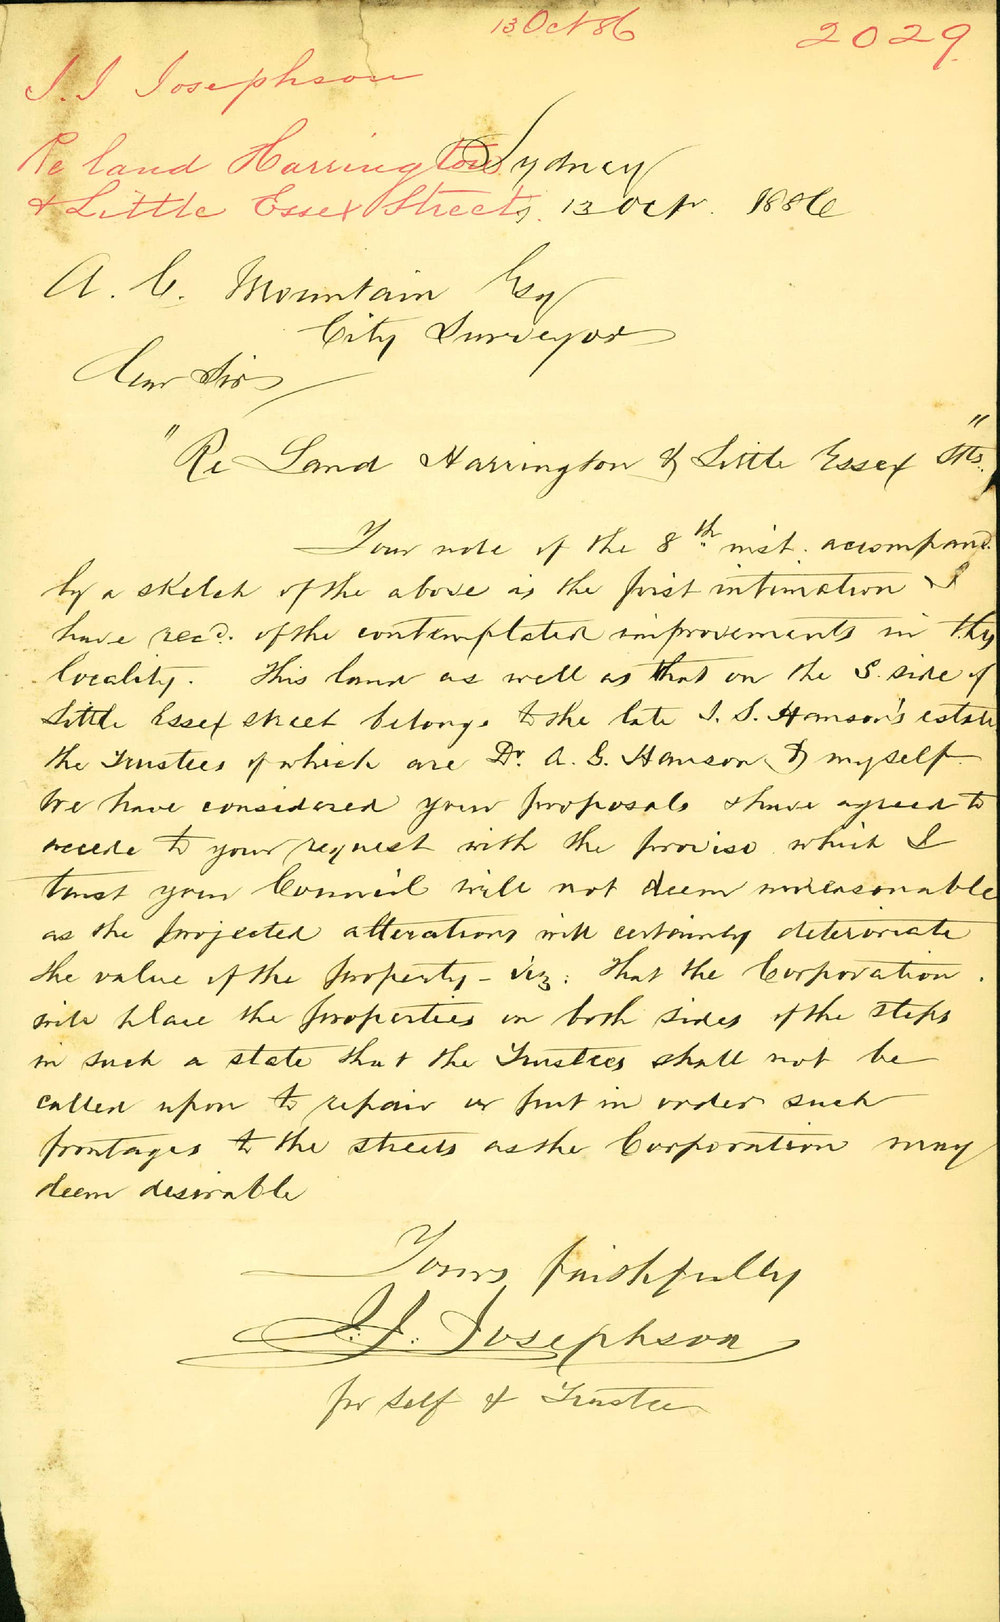 13 Oct 86
2029.
J. J Josephson
Re land Harrington
& Little Essex Streets.
Sydney
13 Octr. 1886
A. C. Mountain Esq
City Surveyor
Dear Sir
"Re Land Harrington & Little Essex Sts."
Your note of the 8th inst. accompand.
by a sketch of the above is the first intimation I
have recd. of the contemplated improvements in this
locality. This land as well as that on the S. side of
Little Essex street belongs to the late J. S. Hanson's estate
the Trustees of which are Dr. A. G. Hanson & myself
We have considered your proposals & have agreed to
accede to your request with the proviso which I
trust your Council will not deem unreasonable
as the projected alterations will certainly deteriorate
the value of the property - viz: that the Corporation.
will place the properties on both sides of the steps
in such a state that the Trustees shall not be
called upon to repair or put in order such
frontages to the streets as the Corporation may
deem desirable
Yours faithfully
J. J. Josephson
for self & Trustee